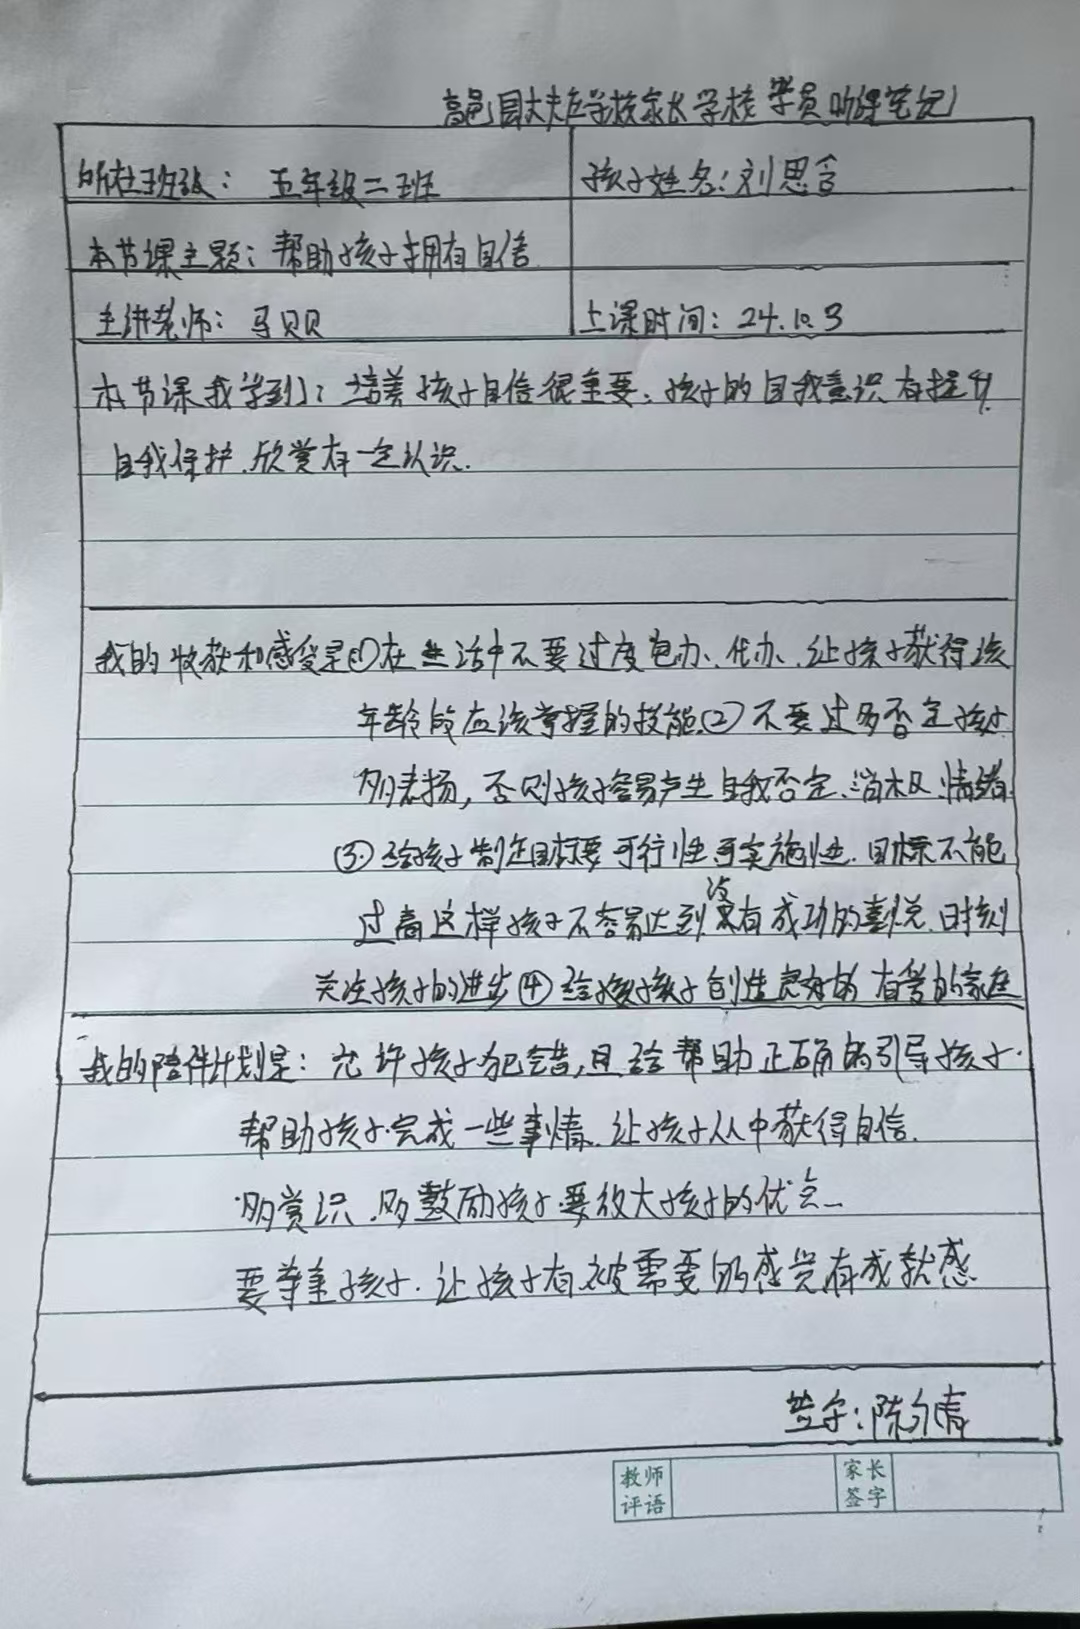 高邑国大夫庄学校家长学校学员听课笔记
所在班级：五年级二班 孩子姓名：刘思含
本节课主题：帮助孩子拥有自信
主讲老师：马贝贝 上课时间：24.10.3
本节课我学到：培养孩子自信很重要。孩子的自我意识有提升
自我保护、欣赏有一定认识.
我的收获和感受是①在生活中不要过度包办、代办、让孩子获得该
年龄段应该掌握的技能.②不要过多否定孩子
多表扬，否则孩子容易产生自我否定、消极、情绪.
③.给孩子制定目标要可行性可实施性.目标不能
过高这样孩子不容易达到没有成功的喜悦.时刻
关注孩子的进步④给孩孩子创造良好的有爱的家庭
我的陪伴计划是：允许孩子犯错,且给帮助正确的引导孩子.
帮助孩子完成一些事情.让孩子从中获得自信.
多赏识.多鼓励孩子要放大孩子的优点
要尊重孩子.让孩子有被需要的感觉有成就感
签字：陈
教师 家长
评语 签字